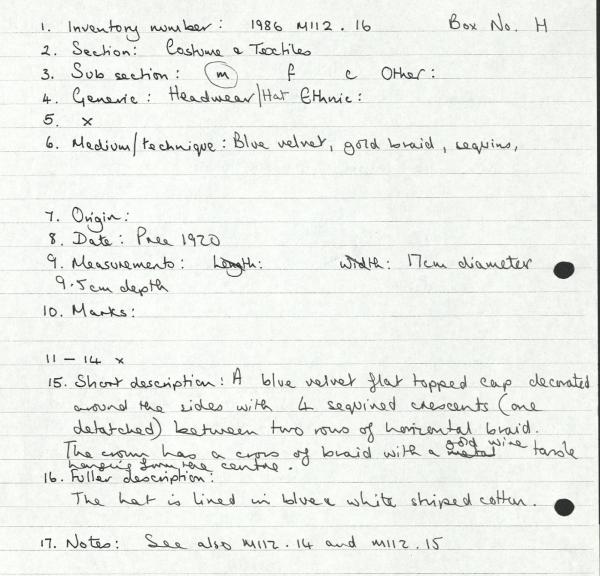 1. Inventory number: 1986 M112.16 Box No. H
2. Section: Costume & Textiles
3. Sub section: m f c Other:
4. Generic: Headwear/Hat Ethnic:
5. x
6. Medium/technique: Blue velvet, gold braid, sequins,
7. Origin:
8. Date: Pree 1920
9. Measurements: Length: width: 17cm diameter
9.5cm depth
10. Marks:
11 – 14 x
15. Short description: A blue velvet flat topped cap decorated
around the sides with 4 sequined crescents (one
detatched) between two rows of horizental braid.
The crown has a cross of braid with a metal gold wire tassle
hanging from the centre.
16. Fuller description:
The hat is lined in blue & white striped cotton.
17. Notes: See also M112.14 and M112.15